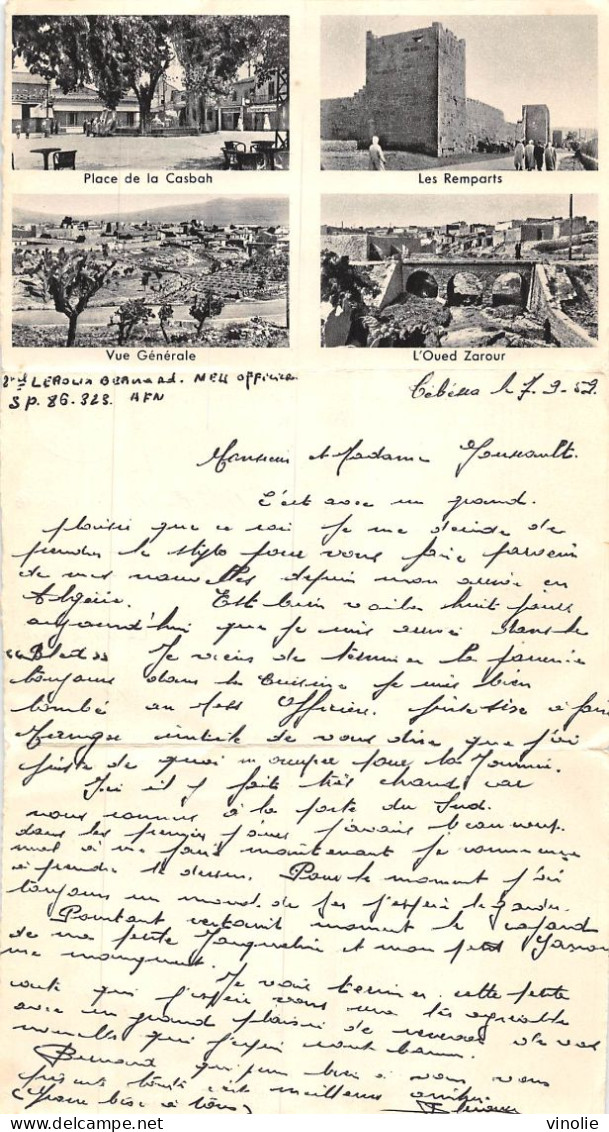 Place de la Casbah
Les Remparts
Vue Générale
L'Oued Zarour
LEROUX BERNARD. MESS Officier
SP. 86.323. AFN
Tébessa le 7.9.59.
Monsieur et Madame
C'est avec un grand.
plaisir que ce soir Je me decide de
prendre le stylo pour vous faire parvenir
de mes nouvelles depuis mon arrivé en
Algérie. Est bien voila huit jours
aujourd'hui que Je suis arrivé dans le
"Bled" Je viens de terminer la journée
toujours dans la cuisine Je suis bien
tombé au Mess Officiers. a faire
Manger inutile de vous dire que j'ai
juste de quoi m'occuper pour la Journée.
Ici il y fait très chaud car
nous sommes à la porte du Sud.
dans les premiers jours J'avais beaucoup
mal à me faire maintenant Je commence
à prendre le dessus. Pour le moment j'ai
toujours un moral de fer j'espère le garder.
Pourtant certains moment le cafard
de ma petite Jacqueline et mon petit
me manquent.
Je vais terminer cette petite
carte qui j'espère vous sera très agréable
avec un grand plaisir de recevoir de vos
nouvelles qui j'espère sont bonnes.
Bernard qui pense bien à vous vous
présente toute ces meilleurs amitiés.
(Grosse bise à tous)